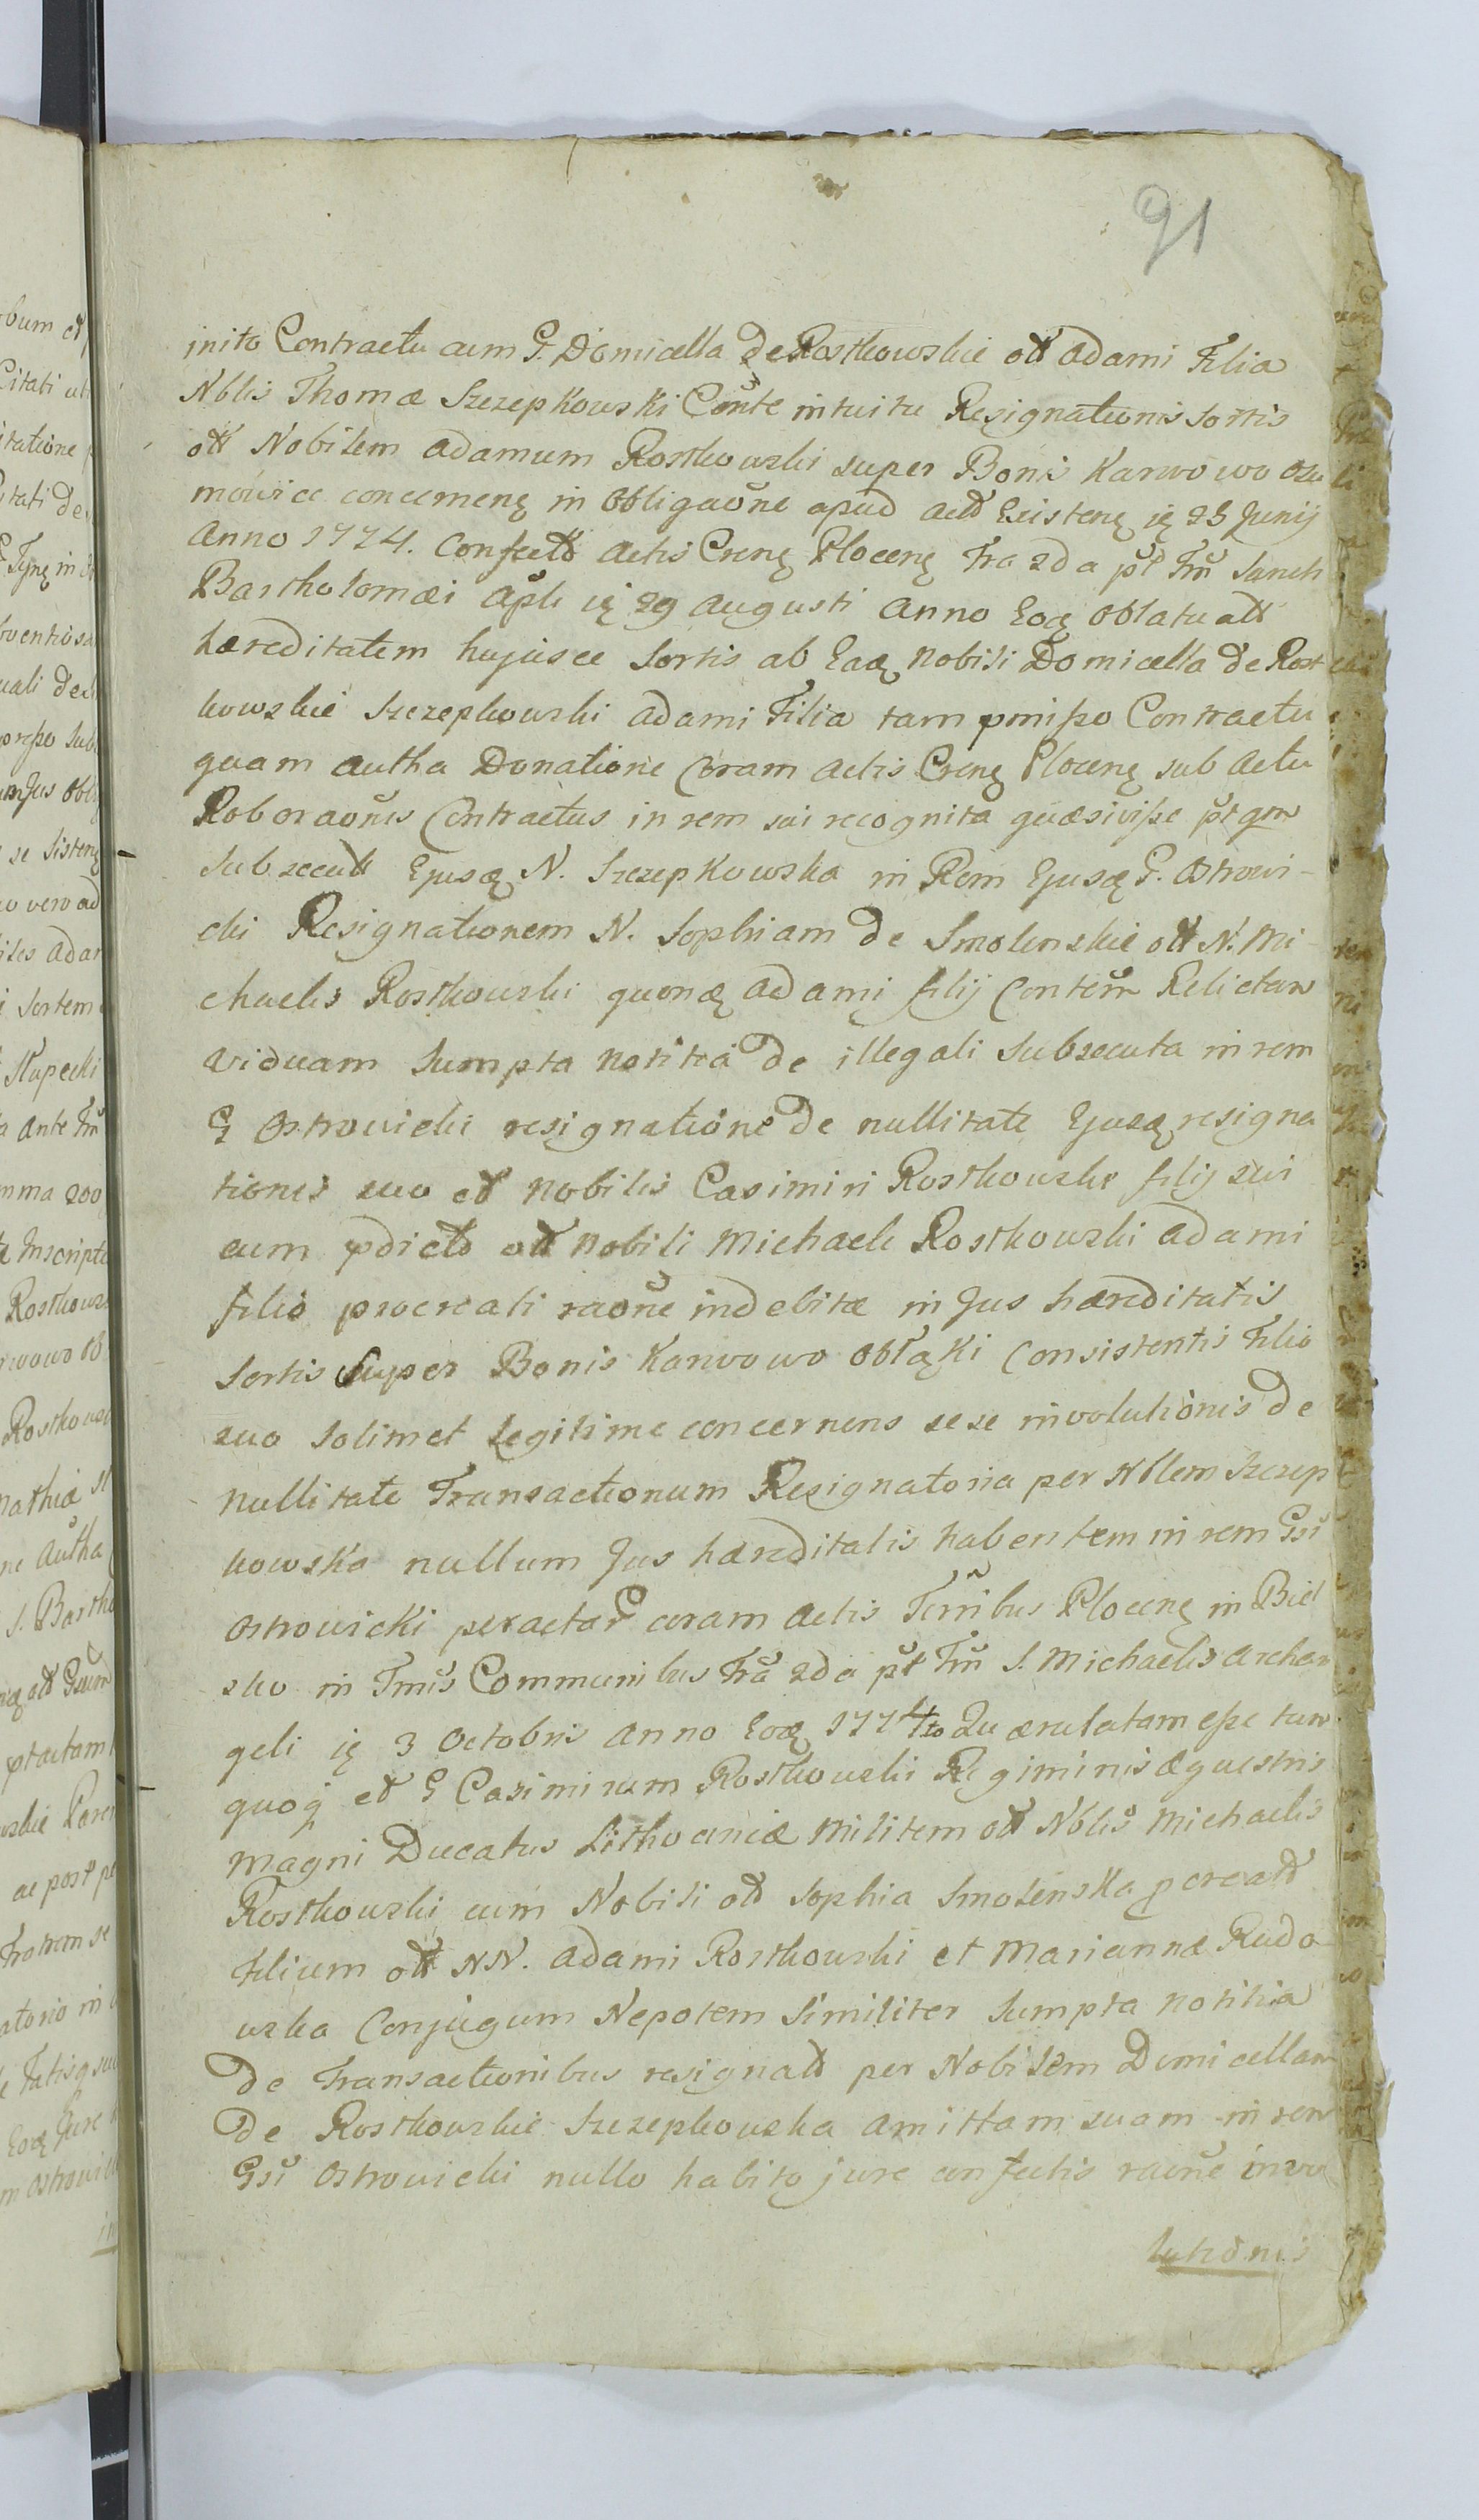 91
inito Contractu cum G. Domicella de Rostkowskie olt Adami Filia
Nblis Thomæ Szczepkowski Conte intuitu Resignationis Sortis
olt Nobilem Adamum Rostkowski super Bonis Karwowo
mowice concernenę in Obligaone apud actt Existenę ię 23 Junij
Anno 1774. Confectt Actis Crenę Plocenę Fra 2da pt Fm Sancti
Bartholomæi Apli ię 29 Augusti Anno Eoq Oblatu alt
hæreditatem hujusce Sortis ab Eaq Nobili Domicella de Rost
kowskie Szczepkowski Adami Filia tam pmisso Contractu
quam autha Donatione Coram Actis Crenę Plocenę sub Actu
Roboraonis Contractus in rem sui recognita quæsivisse pt qm
Subsecutt Ejusq N. Szczepkowska in Rem Ejusq G. Ostrowi-
cki Resignationem N. Sophiam de Smolenskie olt N. Mi-
chaelis Rostkowski quonq Adami filij Contem Relictam
viduam Sumpta notitia de illegali Subsecuta in rem
G Ostrowicki resignatione de nullitate Ejusq resigna
tionis suo et Nobilis Casimiri Rostkowski filij sui
cum pdicto olt Nobili Michaele Rostkowski Adami
filio procreati raone indebitæ in Jus hæreditatis
Sortis Super Bonis Karwowo Obłąki Consistentis Filio
suo Solimet Legitime concernens sese involutionis de
Nullitate Transactionum Resignatoria per Nblem Szczep
kowska nullum Jus hæreditatis habentem in rem Gsi
Ostrowicki peractar coram Actis Terribus Plocenę in Biel
sko in Tmis Communibus Fra 2da pt Fm S. Michaelis Archan
geli ię 3 Octobris Anno Eoq 1774to Quærulatam esse tum
quoq et G Casimirum Rostkowski Regiminis æquestris
Magni Ducatus Lithvaniæ Militem olt Nblis Michaelis
Rostkowski cum Nobili olt Sophia Smolenska pcreatt
Filium olt NN. Adami Rostkowski et Mariannæ Rudo
wska Conjugum Nepotem Similiter Sumpta notitia
de Transactionibus resignatt per Nobilem Domicellam
de Rostkowskie Szczepkowska Amittam suam in rem
Gsi Ostrowicki nullo habito jure confectis raone invo
lutionis